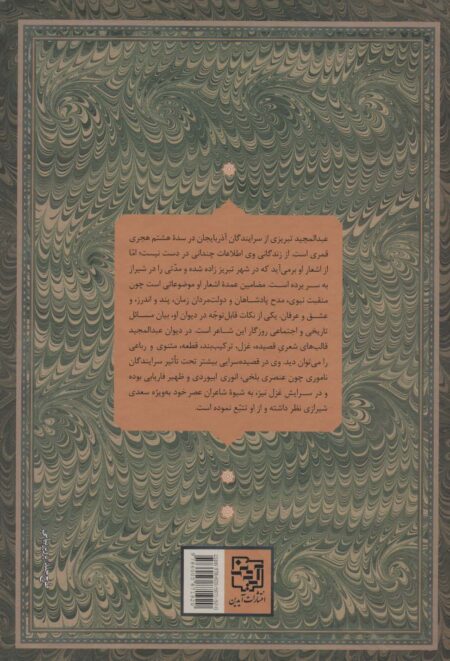 عبدالمجید تبریزی از سرایندگان آذربایجان در سدهٔ هشتم هجری
قمری است. از زندگانی وی اطلاعات چندانی در دست نیست؛ امّا
از اشعار او برمی‌آید که در شهر تبریز زاده شده و مدّتی را در شیراز
به سر برده است. مضامین عمدهٔ اشعار او موضوعاتی است چون
منقبت نبوی، مدح پادشاهان و دولت‌مردان زمان، پند و اندرز، و
عشق و عرفان. یکی از نکات قابل‌توجّه در دیوان او، بیان مسائل
تاریخی و اجتماعی روزگار این شاعر است. در دیوان عبدالمجید
قالب‌های شعری قصیده، غزل، ترکیب‌بند، قطعه، مثنوی و رباعی
را می‌توان دید. وی در قصیده‌سرایی بیشتر تحت تأثیر سرایندگان
ناموری چون عنصری بلخی، انوری ابیوردی و ظهیر فاریابی بوده
و در سرایش غزل نیز، به شیوهٔ شاعران عصر خود به‌ویژه سعدی
شیرازی نظر داشته و از او تتبّع نموده است.
انتشارات آیدین